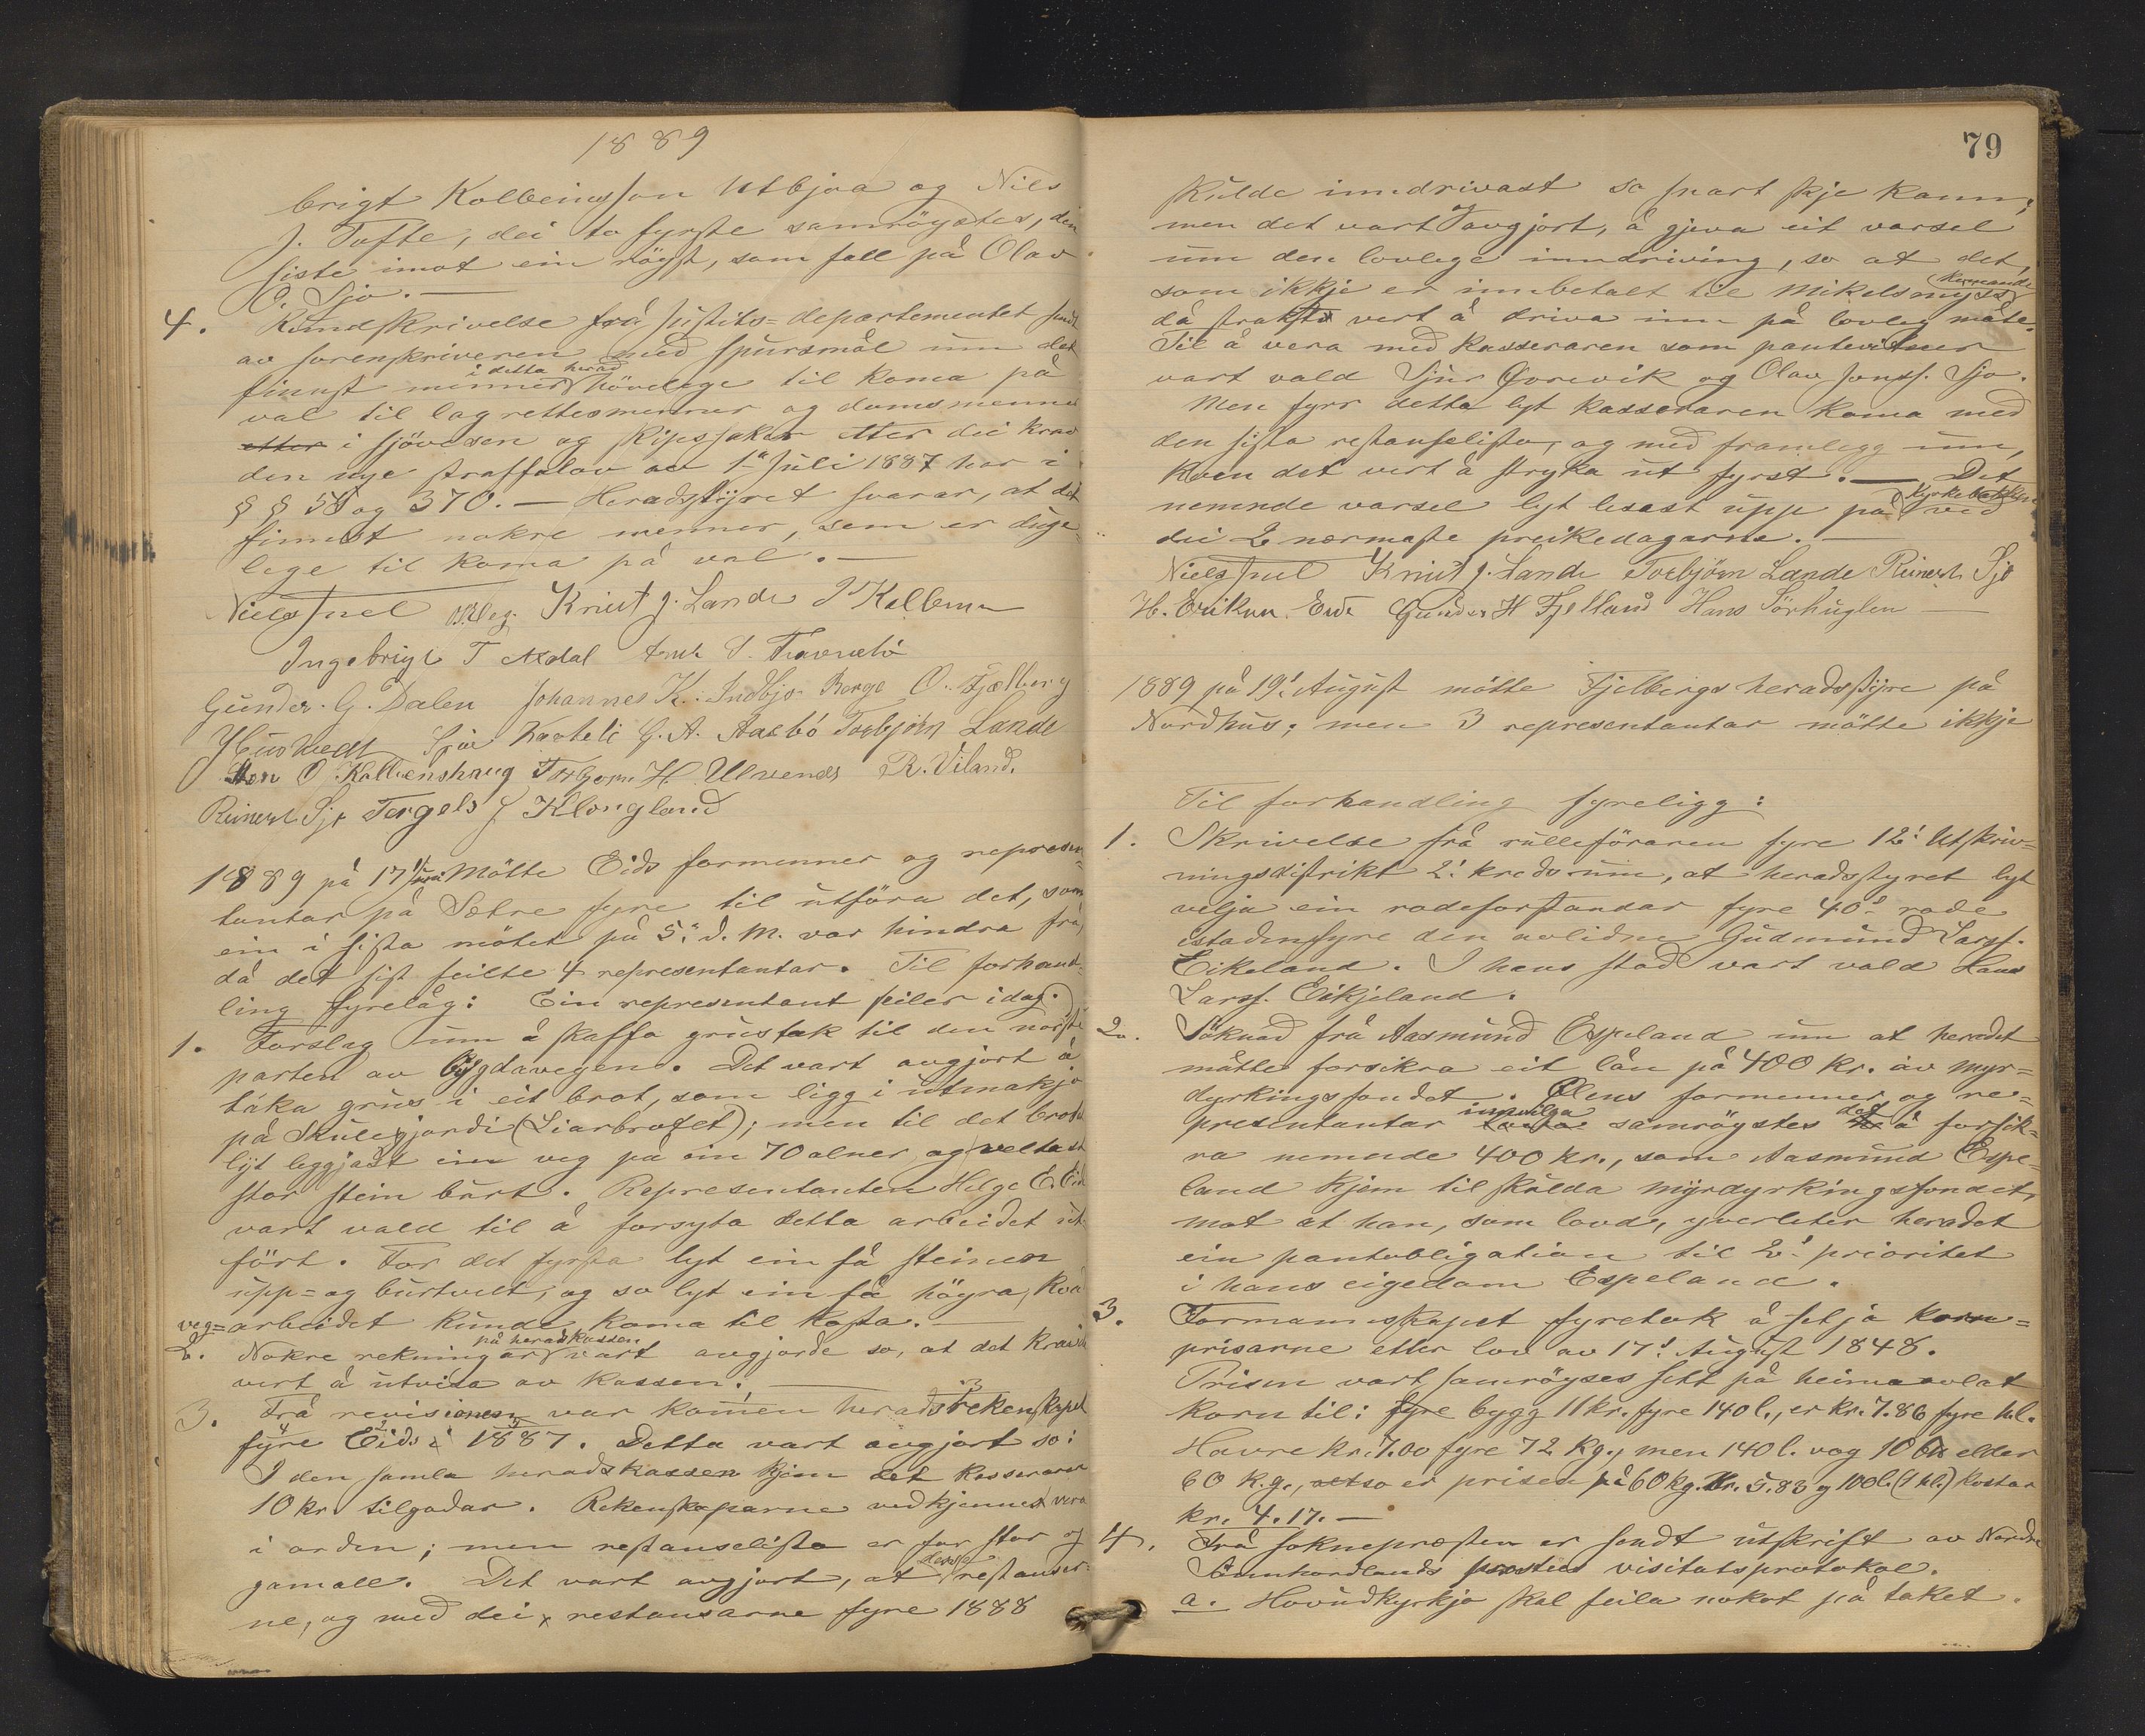 1889
brigt Kolbeinsson Utbjoa og Nils
J. Tofte, dei to fyrste samröystes, den
siste imot ein röyst, som fall på Olav
O. Sjo.—
4. Rundskrivelse frå Justits=departementet sendt
av sorenskriveren med spursmål um det
finnst menner i detta herad hövelege til koma på
val til lagrettesmenner og domsmenner
etter i sjövesen og skipssaker etter dei krav
den nye straffelov av 1ª Juli 1887 har i
§ § 58 og 370.— Heradstyret svarar, at det
finnest nokre menner, som er duge=
lege til koma på val.—
Niels Juel Knut J. Lande
Ingebrigt T Axdal
Gunder. G. Dalen Johannes K. Indbjo Borge O. Fjælberg
Sjur Kaateli G. A. Aaebö Torbjörn Lande
O. Kolbenshaug Torbjorn H. Ulvenes R. Viland.
Reinert Sjo Torgels J Klongland
1889 på 17' Juni Mötte Eids formenner og represen=
tantar på Sætre fyre til utföra det, som
ein i sista mötet på 5.' d. M. var hindra frå,
då det sist feilte 4 representantar. Til forhand=
ling fyrelåg: Ein representant feiler idag.
1. Forslag um å skaffa grustak til den norste
parten av bygdavegen. Det vart avgjort å
taka grus i eit brot, som ligg i utmakjo
på Skulegjordi (Liarbrotet); men til det brotet
lyt leggjast ein veg på ein 70 alner og veltast
stor stein burt. Representanten Helge E. Eid
vart vald til å forsyta detta arbeidet ut=
fört. For det fyrsta lyt ein få steinen
upp= og burtvelt, og so lyt ein få höyra, kva
veg=arbeidet kunde koma til kosta.—
2. Nokre rekningar på heradskassen vart avgjorde so, at det kravde
vert å utvisa av kassen.—
3. Frå revisionen var komen heradsrekenskapet
fyre Eid i 1887. Detta vart avgjort so:
I den samla heradskassen kjem det kasseraren
10 kr. tilgodar. Rekenskaparne vedkjennest vera
i orden; men restanselista er for stor og
gamall. Det vart avgjort, at desse restanser=
ne, og med dei restansarne fyre 1888
79
skulde inndrivast so snart skje kann;
men det vart og avgjort, å gjeva eit varsel
um den lovlege inndriving, so at det,
som ikkje er innbetalt til Mikelsmyss komande
då strakst vert å driva inn på lovleg måte.
Til å vera med kasseraren som pantevitner
vart vald Sjur Qvrevik og Olav Jonss. Sjo.
Men fyrr detta lyt kasseraren koma med
den sista restanselista, og med framlegg um,
kven det vert å stryka ut fyrst.— Det
nemnde varsel lyt lesast upp på ved Kyrkebakken
dei 2 nærmaste preikedagarne.—
Niels Juel Knut J. Lande Torbjörn Lande Reinert Sjo
H. Eriksen Eide Gunder H Fjelland Hans Sörhuglen
1889 på 19' August mötte Fjelbergs heradsstyre på
Nordhus; men 3 representantar mötte ikkje
Til forhandling fyreligg:
1. Skrivelse frå rulleföraren fyre 12' Utskriv=
ningsdistrikt 2' kreds um, at heradsstyret lyt
velja ein rodeforstandar fyre 40' rode
istadenfyre den avlidne Gudmund Larss.
Eikeland. I hans stad vart vald Lars
Larss. Eikjeland.
2. Söknad frå Aasmund Espeland um at heradet
måtte forsikra eit lån på 400 kr. av myr=
dyrkingsfondet. Ølens formenner og re=
presentantar innvilga samröystes det å forsik=
ra nemnde 400 kr., som Aasmund Espe=
land kjem til skulda myrdyrkingsfondet,
mot at han, som lovd, yverleter heradet
ein pantobligation til 2' prioritet
i hans eigedom Espeland.
3. Formannskapet fyretok å setja korn=
prisarne etter lov av 17' August 1848.
Prisen vart samröystes sett på heimaavlat
korn til: fyre bygg 11 kr. fyre 140 l., er kr. 7.86 fyre hl.
Havre kr. 7.00 fyre 72 kg., men 140 l. vog elder
60 kg., altso er prisen på 60 kg. kr. 5.83 og 100 l. (1 hl.) kostar
kr. 4.17.—
4. Frå soknepræsten er sendt utskrift av Nordre
Sönnhordlands prostens visitatsprotokol.
a. Hovudkyrkja skal feila nokot på taket.